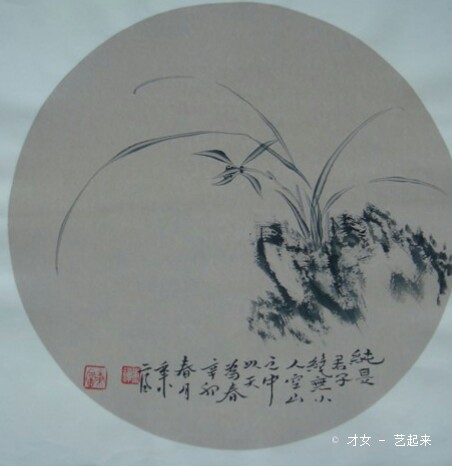 純是
君子
絕無小
人空山
之中
以天
為春
辛卯
春月
© 才女 - 艺起来